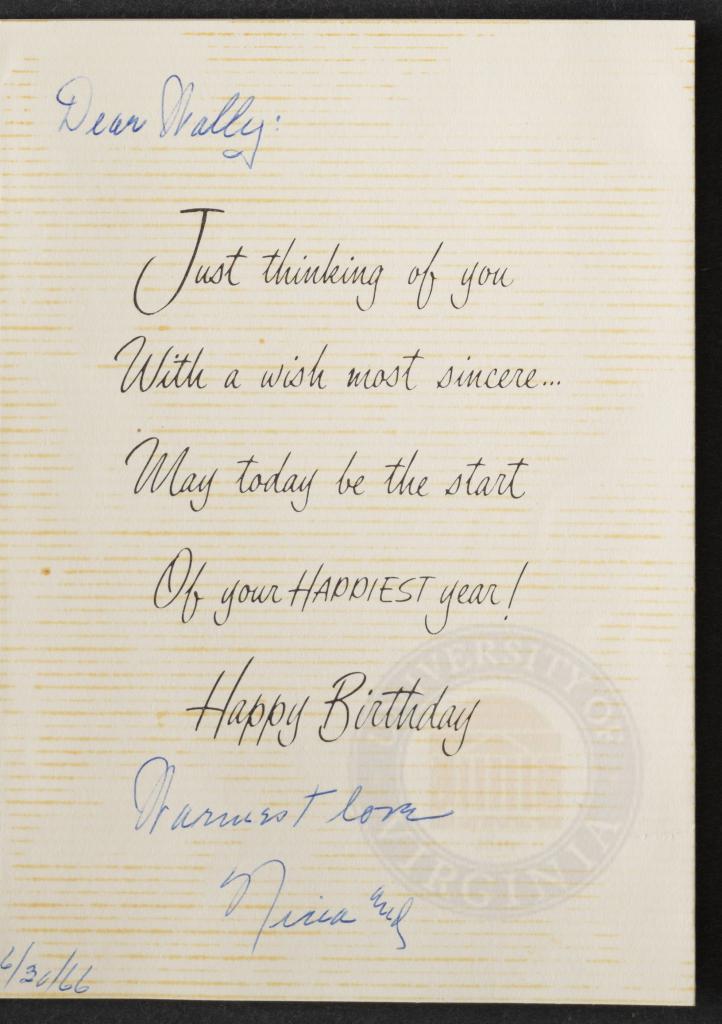 Dear Wally:
Just thinking of you
With a wish most sincere...
May today be the start
Of your HAPPIEST year!
Happy Birthday
Warmest love
Nina and
6/30/66
UNIVERSITY OF
VIRGINIA